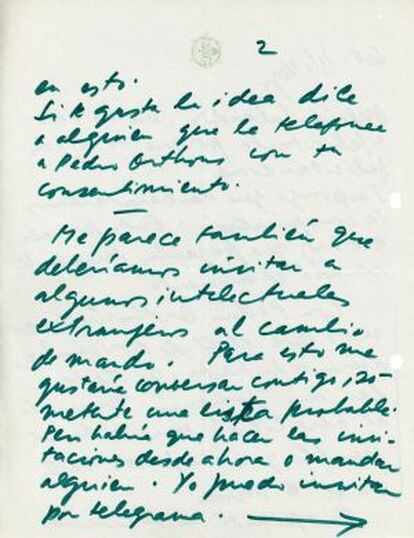 2
en esto.
Si te gusta la idea dile
a alguien que le telefonee
a Pedro Orthous con tu
consentimiento.
Me parece también que
deberíamos invitar a
algunos intelectuales
extranjeros al cambio
de mando. Para esto me
gustaría conversar contigo, so-
meterte una lista probable.
Pero habría que hacer las invi-
taciones desde ahora o mandar
alguien. Yo puedo invitar
por telegrama.